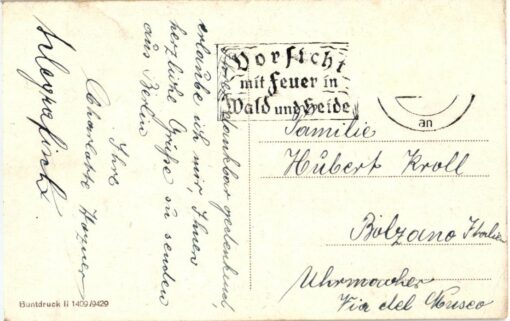 Ihrer dankbar gedenkend,
erlaube ich mir, Ihnen
herzliche Grüße zu senden
aus Berlin
Ihre
Charlotte
Vorsicht
mit Feuer in
Wald und Heide
an
Familie
Hubert Kroll
Bolzano Italien
Uhrmacher
Via del Museo
Buntdruck II 1409/9429